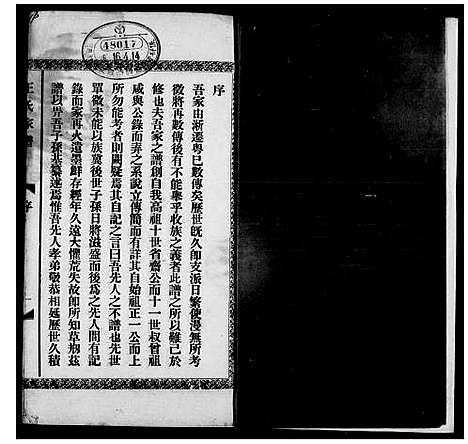 48017
16 4 14
序
吾家由浙遷粤已數傳矣歷世旣久卽支派日繁使漫無所考
徵將再數傳後有不能舉乎收族之義者此譜之所以難已於
修也夫吾家之譜創自我高祖十世省齋公而十一世叔曾祖
咸與公錄而弆之系說立傳簡而有詳其自始祖正一公而上
所勿能考者則闕疑焉其自記之言曰吾先人之不譜也先世
單微未能以族冀後世子孫日將滋盛而後爲之先人間有記
錄而家再火遺墨鮮存經年久遠大懼荒失故卽所知草剏茲
譜以畀吾子孫共纂述焉惟吾先人孝弟敬恭相延歷世久積
王氏家譜
序